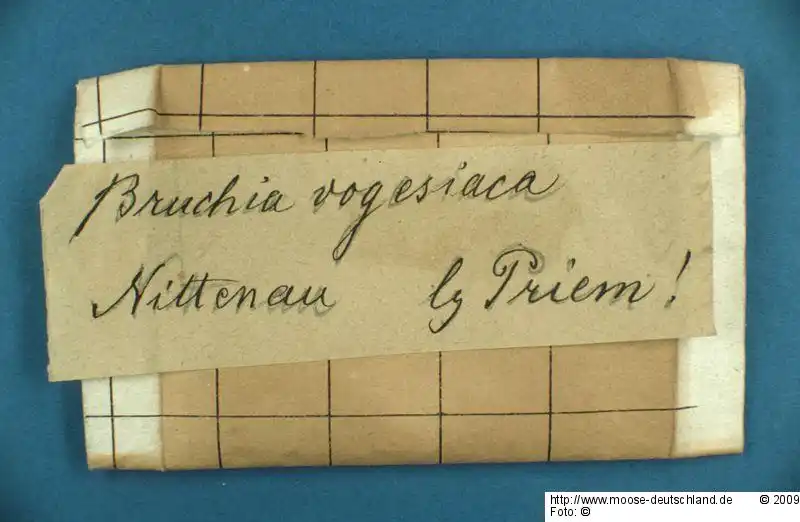 Bruchia vogesiaca
Nittenau lg Priem!
http://www.moose-deutschland.de © 2009
Foto: ©